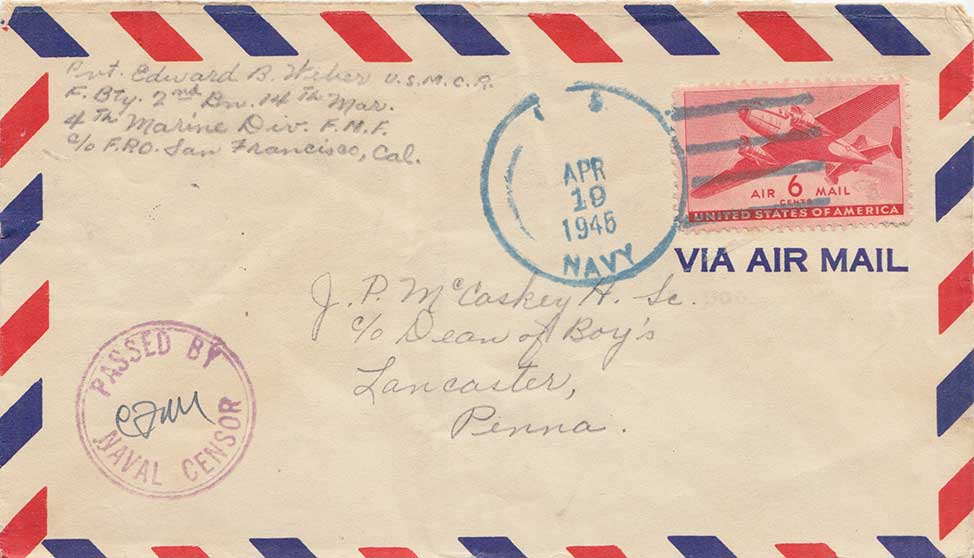 Pvt. Edward B. Weber U.S.M.C.R.
F. Bty. 2nd Bn. 14th Mar.
4th Marine Div. F.M.F.
c/o F.P.O. San Francisco, Cal.
U S
APR
19
1945
NAVY
AIR 6 MAIL
CENTS
UNITED STATES OF AMERICA
VIA AIR MAIL
J. P. McCaskey H. Sc.
c/o Dean of Boy's
Lancaster,
Penna.
PASSED BY
NAVAL CENSOR